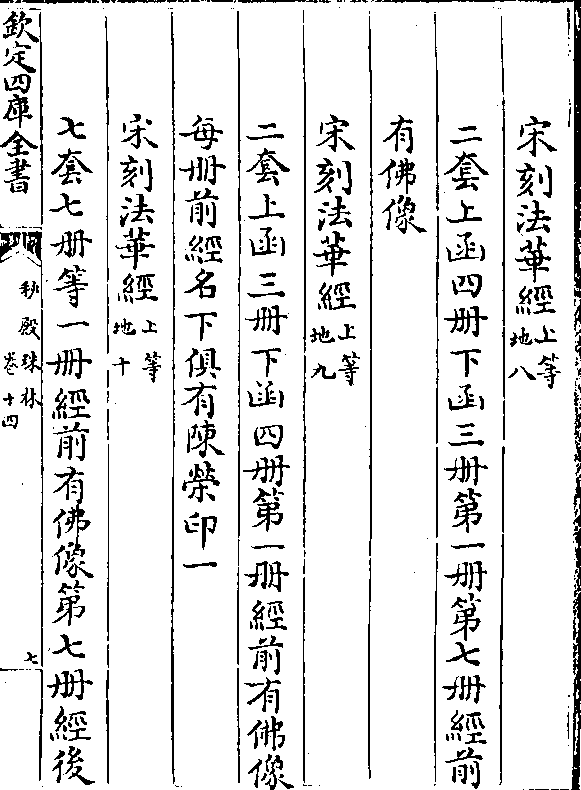 宋刻法華經上等地八
二套上函四册下函三册第一册第七册經前
有佛像
宋刻法華經上等地九
二套上函三册下函四册第一册經前有佛像
每册前經名下俱有陳榮印一
宋刻法華經上等地十
七套七册等一册經前有佛像第七册經後
欽定四庫全書
秘殿珠林
卷十四
七